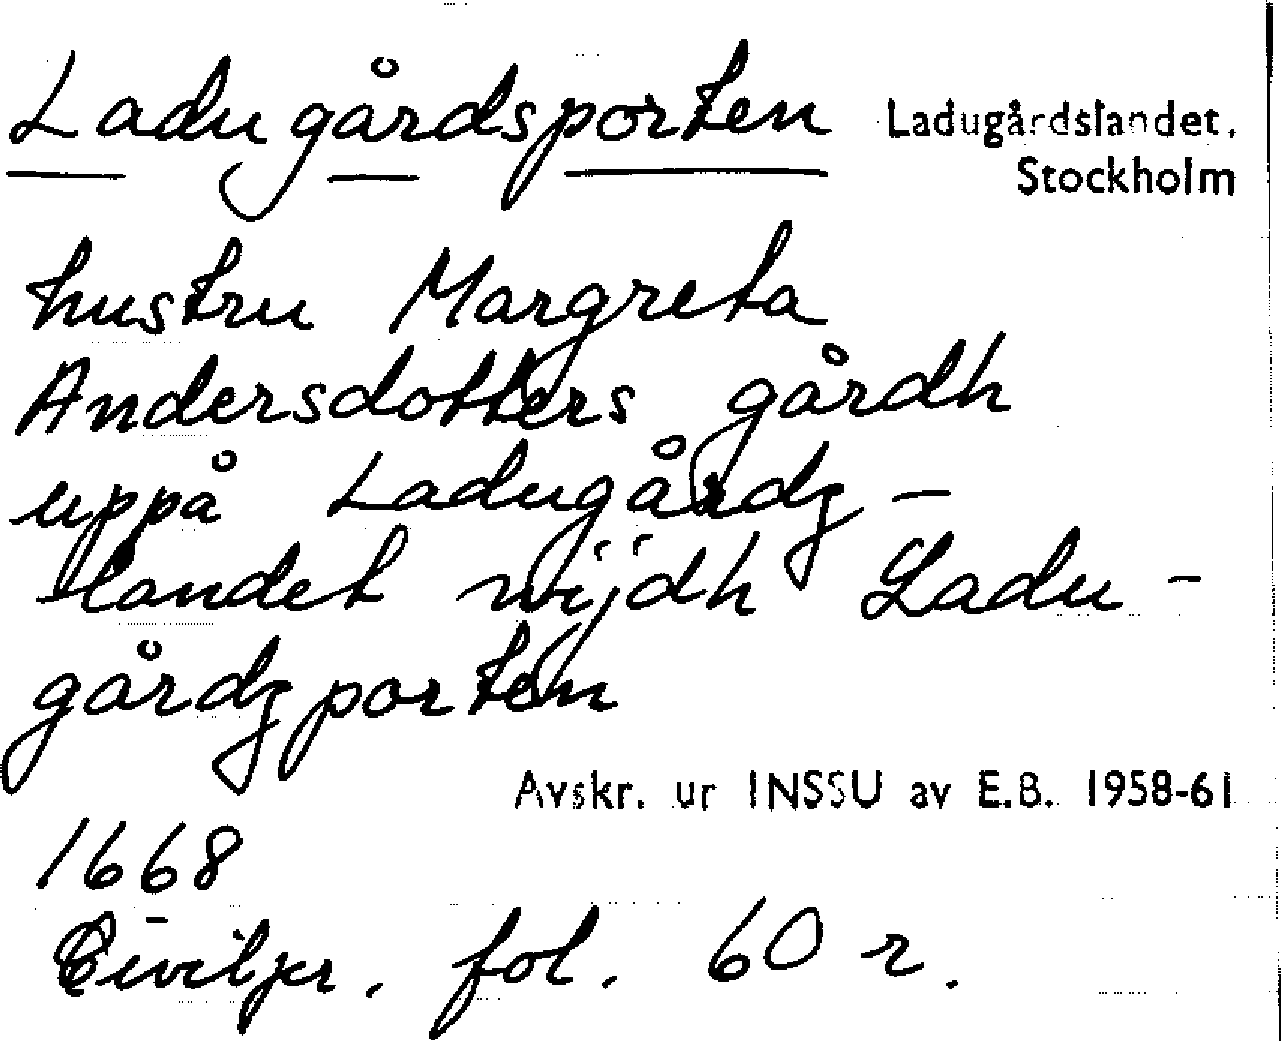 Ladugårdsporten
Ladugårdslandet,
Stockholm
hustru Margreta
Andersdotters gårdh
uppå Ladugårdz-
landet wijdh Ladu-
gårdzporten
Avskr. ur INSSU av E.B. 1958-61
1668
Civiljer. fol. 60 r.